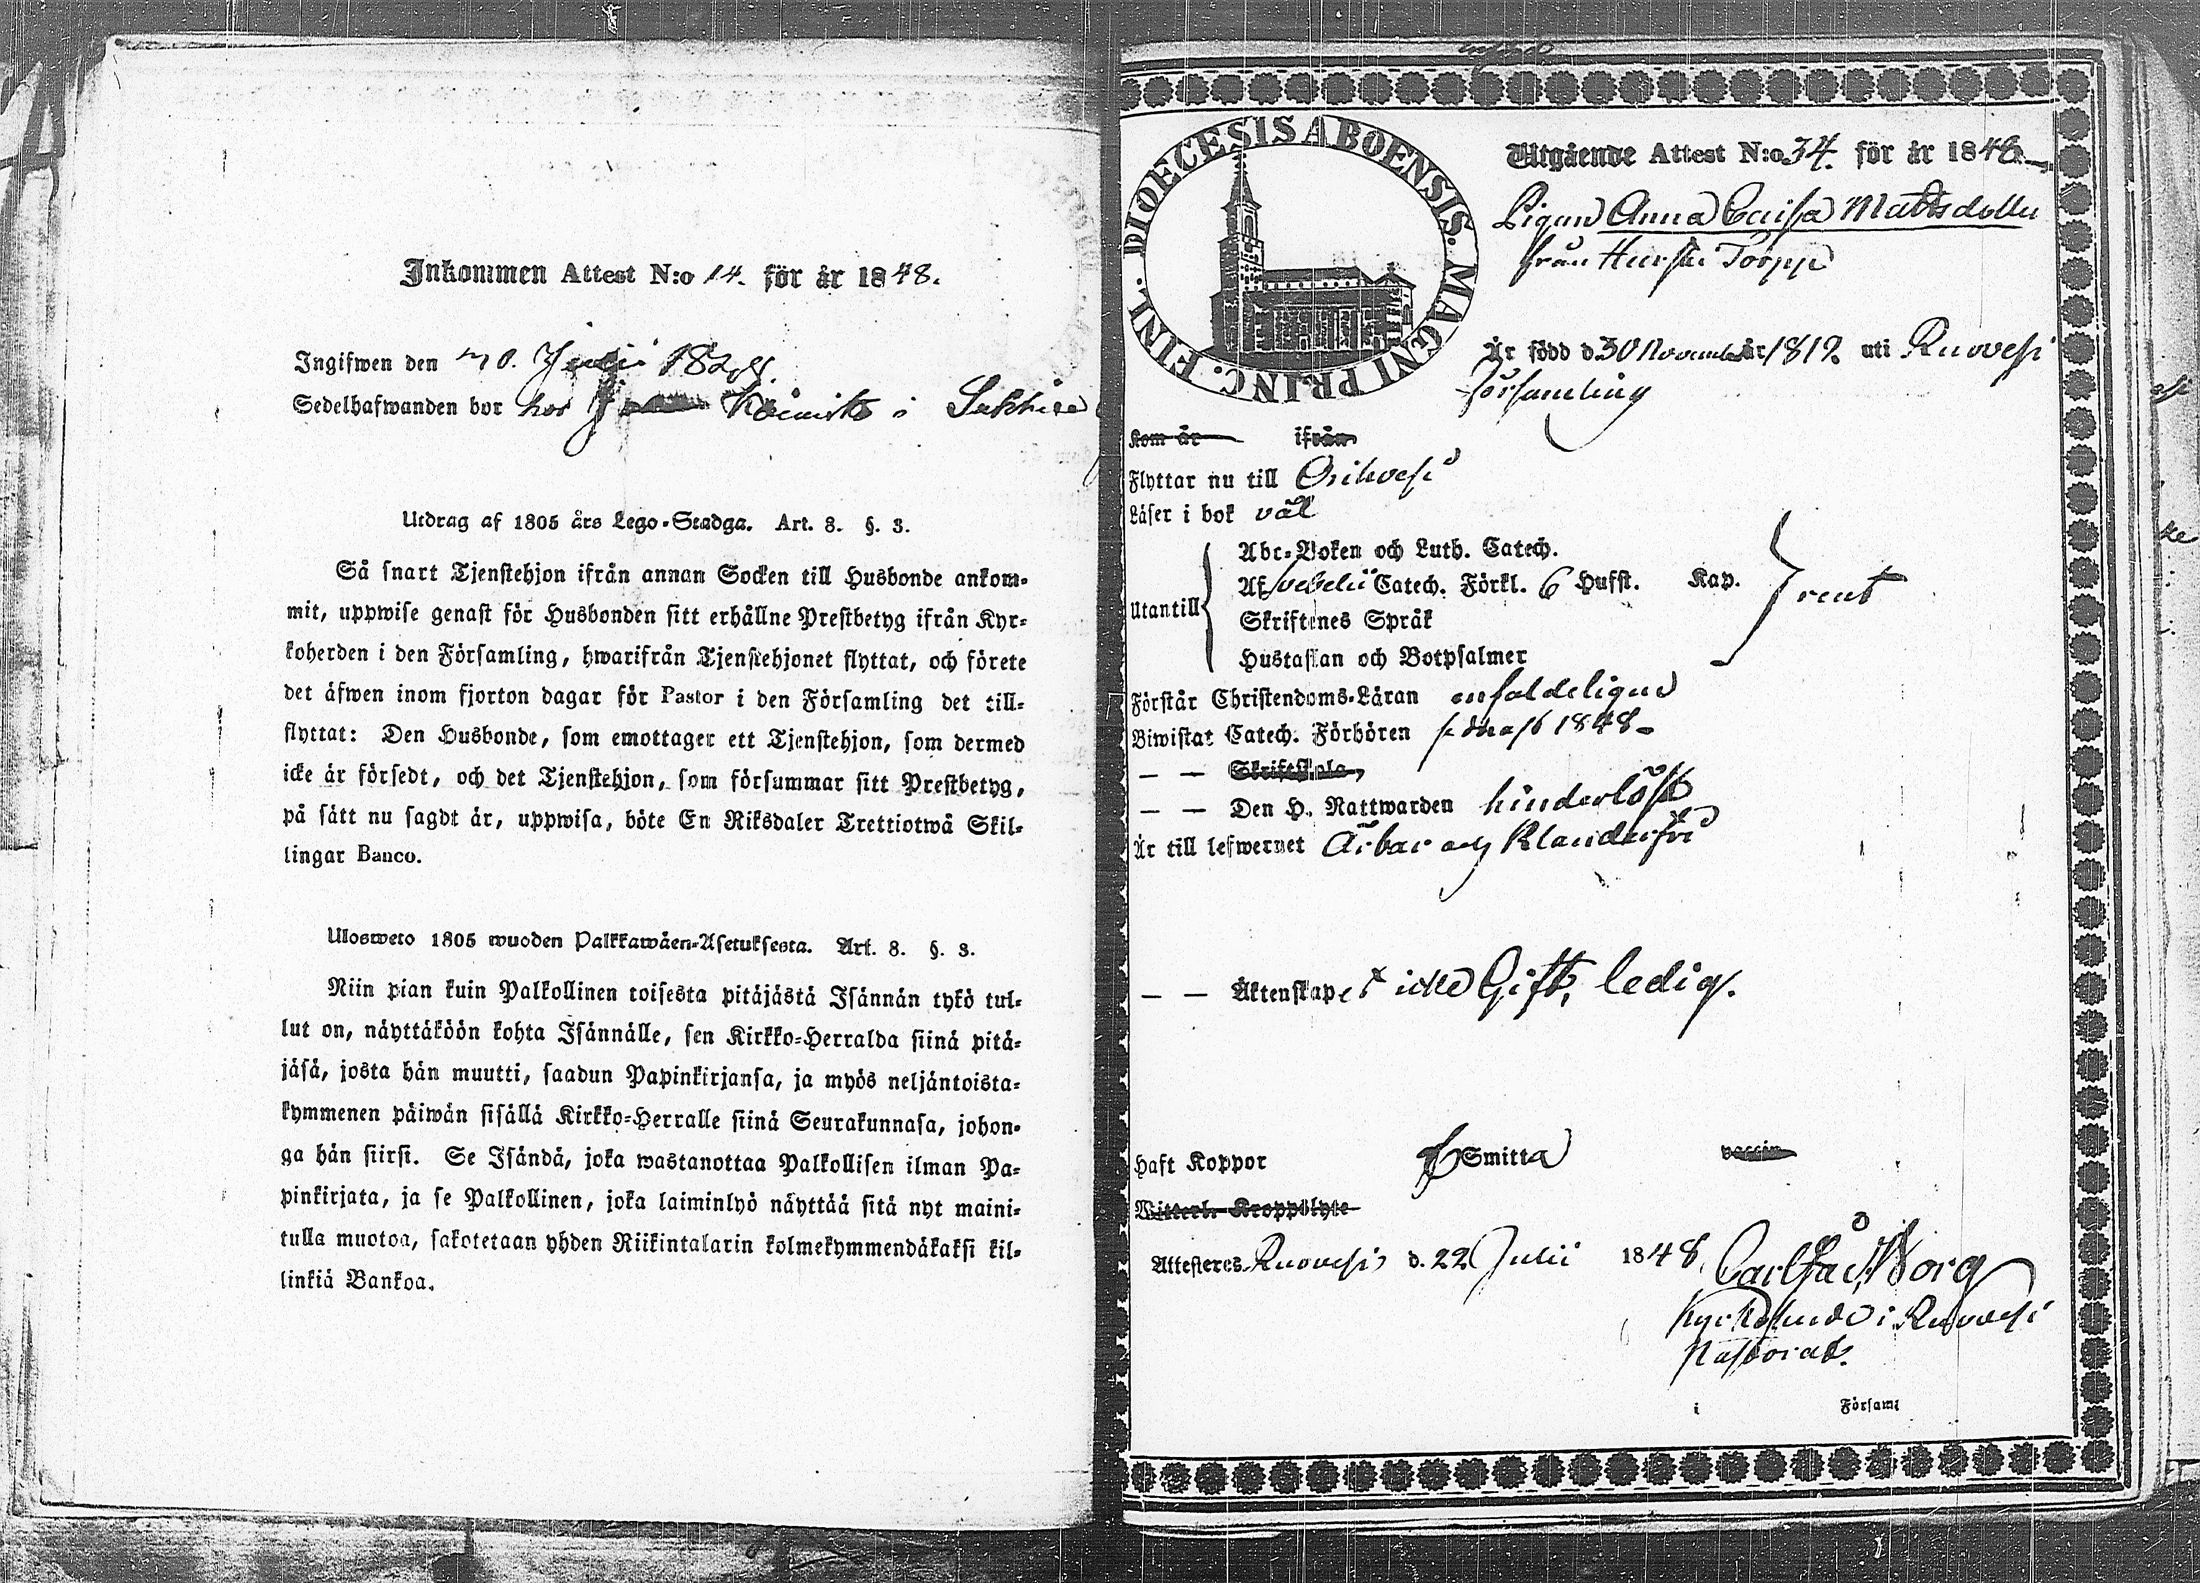 Inkommen Attest N:o 14. för år 1848.
Ingifwen den Julii
Sedelhafwanden bor hos i
Utdrag af 1805 års Lego-Stadga. Art. 8. §. 3.
Så snart Tjenstehjon ifrån annan Socken till Husbonde ankom-
mit, uppwise genast för Husbonden sitt erhållne Prestbetyg ifrån Kyr-
koherden i den Församling, hwarifrån Tjenstehjonet flyttat, och förete
det äfwen inom fjorton dagar för Pastor i den Församling det till-
flyttat: Den Husbonde, som emottager ett Tjenstehjon, som dermed
icke är försedt, och det Tjenstehjon, som försummar sitt Prestbetyg,
på sätt nu sagdt är, uppwisa, böte En Riksdaler Trettiotwå Skil-
lingar Banco.
Ulosweto 1805 wuoden Palkkawäen-Asetuksesta. Art. 8. §. 3.
Niin pian kuin Palkollinen toisesta pitäjästä Isännän tykö tul-
lut on, näyttäköön kohta Isännälle, sen Kirkko-Herralda siinä pitä-
jäsä, josta hän muutti, saadun Papinkirjansa, ja myös neljäntoista-
kymmenen päiwän sisällä Kirkko-Herralle siinä Seurakunnasa, johon-
ga hän siirsi. Se Isändä, joka wastanottaa Palkollisen ilman Pa-
pinkirjata, ja se Palkollinen, joka laiminlyö näyttää sitä nyt maini-
tulla muotoa, sakotetaan yhden Riikintalarin kolmekymmendäkaksi kil-
linkiä Bankoa.
DIOECESIS ABOENSIS. MAGNI PRINC. FINL.
Utgående Attest N:o 34. för år 1848
Pigan Anna Caisa Mattsdotter
från Torpp
Är född d. 30 November år 1819. uti Ruovesi
församling
Kom år ifrån
Flyttar nu till Orihvesi
Läser i bok väl
Utantill
Abc-Boken och Luth. Catech.
Af Svebelii Catech. Förkl. 6 Hufst. Kap.
Skriftenes Språk
Hustaflan och Botpsalmer
rent
Förstår Christendoms-Läran enfaldeligen
Biwistat Catech. Förhören sednast 1848
— — Skriftskola
— — Den H. Nattwarden hinderlöst
Är till lefwernet Ärbar och Klanderfri
— — Äktenskap icke Gift, ledig.
Haft Koppor Smitta vaccin
Witterl. Kroppslyte
Attesteres Ruovesi d. 22 Julii 1848.
Carl Borg
Kyrkoherde i Ruovesi
Pastorat.
i Församl